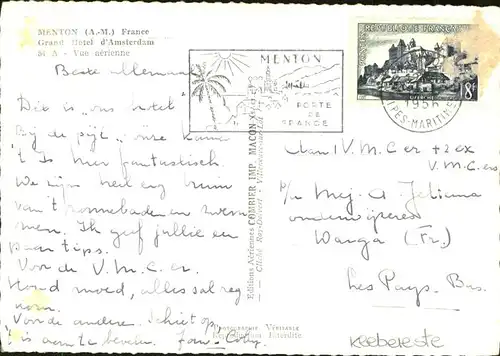 MENTON (A.-M.) France
Grand Hôtel d'Amsterdam
A - Vue aérienne
Beste allemaal
Die is „ons hotel"
Bij de pijl onze kamer
't Is hier fantastisch
We zijn heel erg bruin
van 't zonnebaden en zwem
men. Ik geef jullie een
paar tips.
Voor de V.M.C. er.
Houd moed, alles sal reg
kom.
Voor de andere. Schiet op,
't is warm te bevelen. Coby.
MENTON
PORTE
DE
FRANCE
REPUBLIQUE FRANÇAISE
POSTES
UZERCHE
8F
1956
ALPES-MARITIMES
Editions Aériennes COMBIER IMP. MACON
Cliché Ray-Delvert - Villeneuve-sur-Lot
Aan 1 V.M.C er + 2 ex
V.M.C ers
p/a Mej. A Jelsma
onderwijzeres
Warga (Fr.)
Les Pays Bas.
PHOTOGRAPHIE VÉRITABLE
Reproduction Interdite
kleberéste